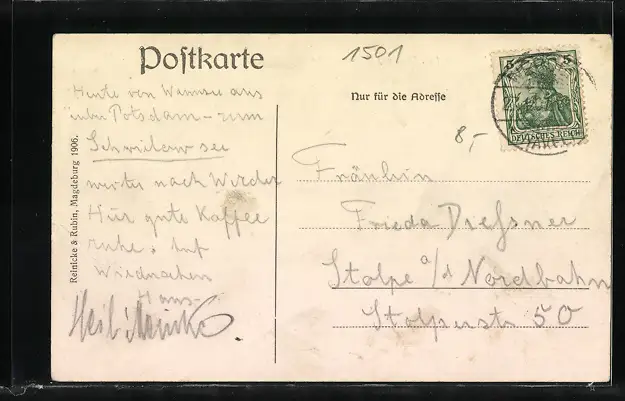 Postkarte
1501
Nur für die Adresse
5 5
DEUTSCHES REICH
8,-
Heute von Wannsee aus
über Potsdam – zum
Schwielow see
weiter nach Werder
Hier gute Kaffee
ruhe. Auf
Wiedersehen
Hans
Fräulein
Frieda Dressner
Stolpe a/d Nordbahn
Stolperstr 50
Reinicke & Rubin, Magdeburg 1906.